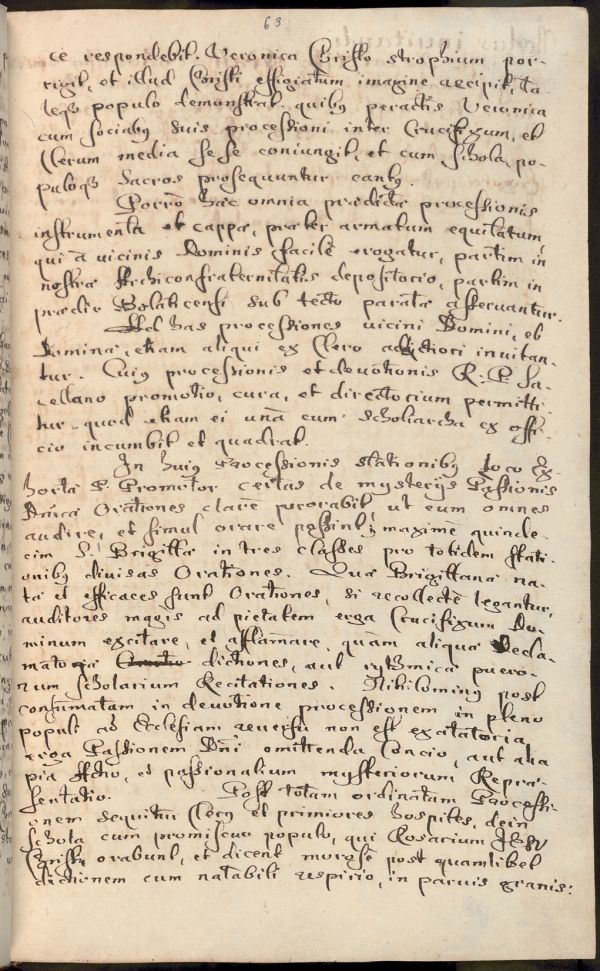 63
ce respondebit. Veronica Christo strophium por-
rigit, et illud Christi effigiatum imagine recipit, ta-
leq3 populo demonstrat. quibus peractis Veronica
cum sociabus suis processioni inter Crucifixum, et
Clerum media sese coniungit, et cum schola, po-
puloq3 Sacros prosequuntur cantus.
Porrò haec omnia praedicta processionis
instrumenta et cappae, praeter armatum equitatum,
qui à vicinis Dominis facile erogatur, partim in
nostrae Archiconfraternitatis depositorio, partim in
praedio sub tecto parata asservantur.
Ad has processiones vicini Domini, et
Dominae, etiam aliqui ex Clero invitan-
tur. Cuius processionis et devotionis R. P. Sa-
cellano promotio, cura, et directorium permitti-
tur, quod etiam ei unà cum scholiarcha ex offi-
cio incumbit et quadrat.
In huius Processionis stationibus loco Ex-
hortae P. Promotor certas de mysterijs Passionis
Dnicae Orationes clarè perorabit, ut eum omnes
audire, et simul orare possint, maximè quinde-
cim S. Brigittae in tres classes pro totidem stati-
onibus divisas Orationes. Quae Brigittanae na-
tae et efficaces sunt Orationes, si recollectè legantur,
auditores magis ad pietatem erga Crucifixum Do-
minum excitare, et afflamare, quàm aliquae Decla-
matoriae dictiones, aut rythmicae puero-
rum scholarium Recitationes. Nihilominus post
consumatam in devotione processionem in pleno
populi ad Ecclesiam reversu non est excitatoria
erga Passionem Dni omittenda Concio, aut alia
pia Actio, et passionalium mysteriorum Reprae-
sentatio. Post totam ordinatam Processi-
onem sequitur Clerus et primiores hospites, dein
schola cum promiscuo populo, qui Rosarium Jesu
Christi orabunt, et dicent morosè post quamlibet
dictionem cum notabili respirio, in parvis granis: